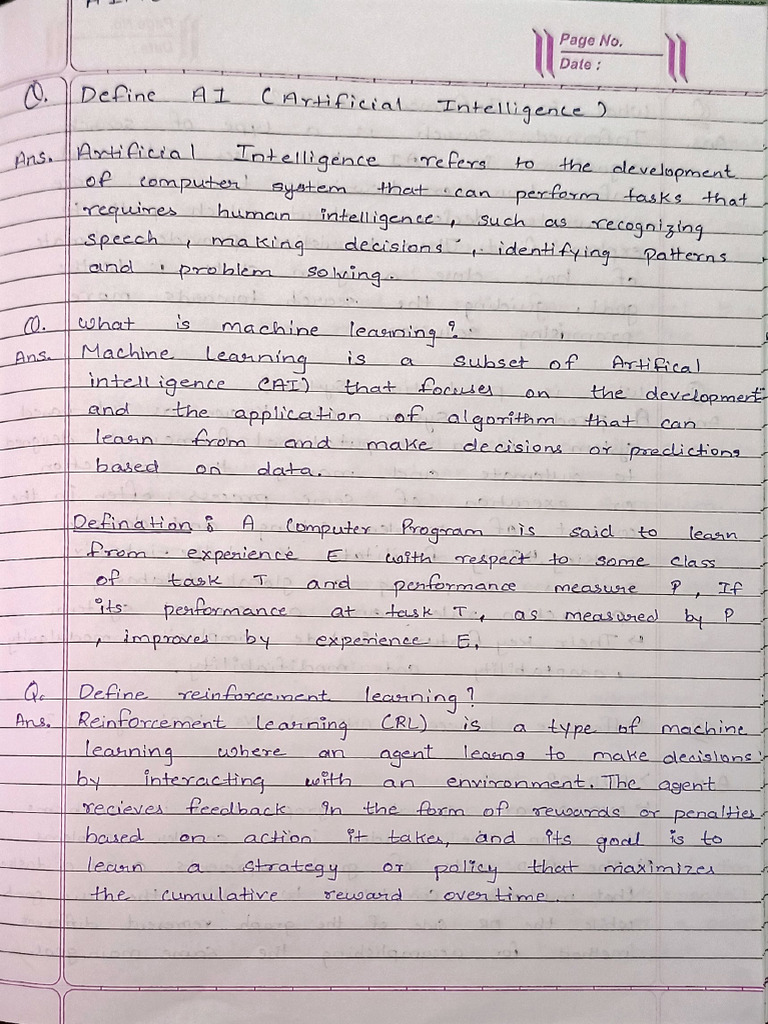 Page No.
Date :
Q. Define AI (Artificial Intelligence)
Ans. Artificial Intelligence refers to the development
of computer system that can perform tasks that
requires human intelligence, such as recognizing
speech, making decisions, identifying patterns
and problem solving.
Q. What is machine learning?
Ans. Machine Learning is a subset of Artifical
intelligence (AI) that focuses on the development
and the application of algorithm that can
learn from and make decisions or predictions
based on data.
Defination : A Computer Program is said to learn
from experience E with respect to some class
of task T and performance measure P, If
its performance at task T, as measured by P
, improves by experience E.
Q. Define reinforecment learning?
Ans. Reinforcement Learning (RL) is a type of machine
learning where an agent learns to make decisions
by interacting with an environment. The agent
recieves feedback in the form of rewards or penalties
based on action it takes, and its goal is to
learn a strategy or policy that maximizes
the cumulative reward overtime.